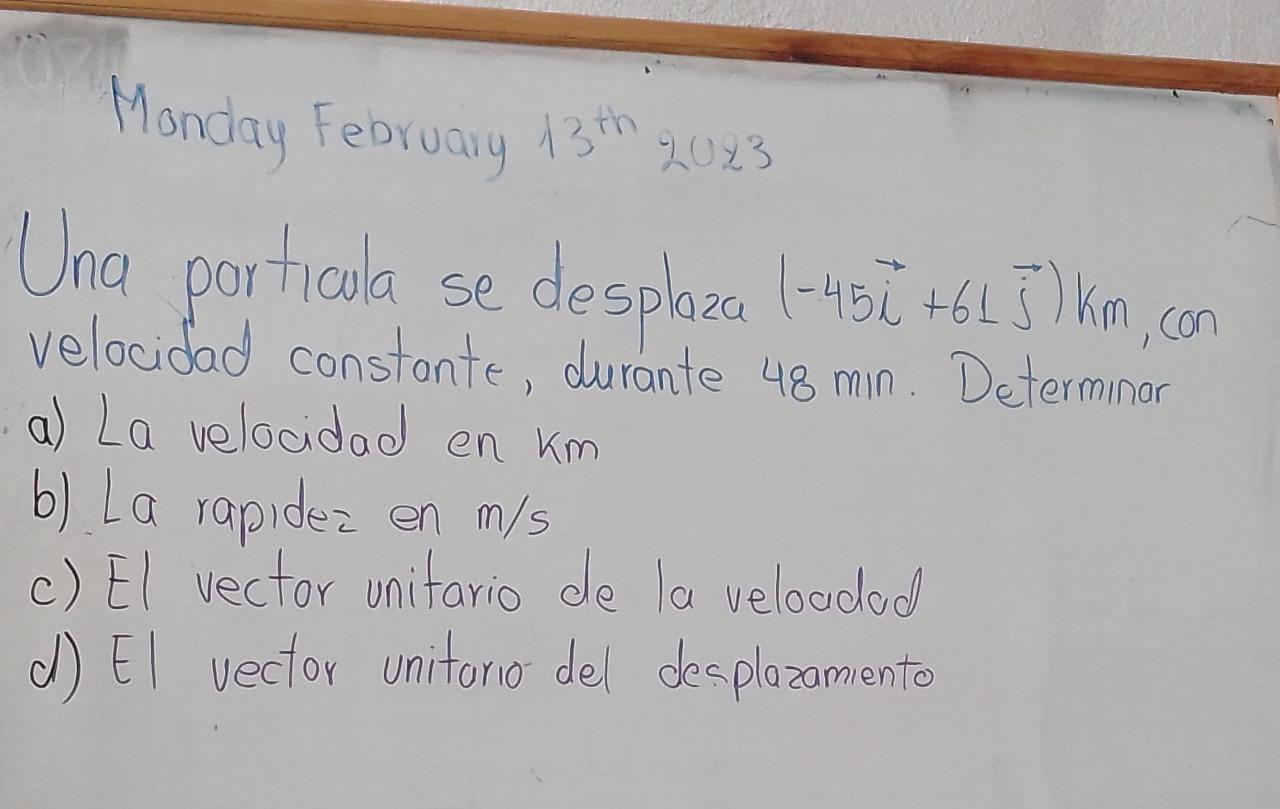 Monday February 13th 2023
Una particula se desplaza (-45i⃗ +61j⃗) Km, con
velocidad constante, durante 48 min. Determinar
a) La velocidad en Km
b) La rapidez en m/s
c) El vector unitario de la velocidad
d) El vector unitario del desplazamiento